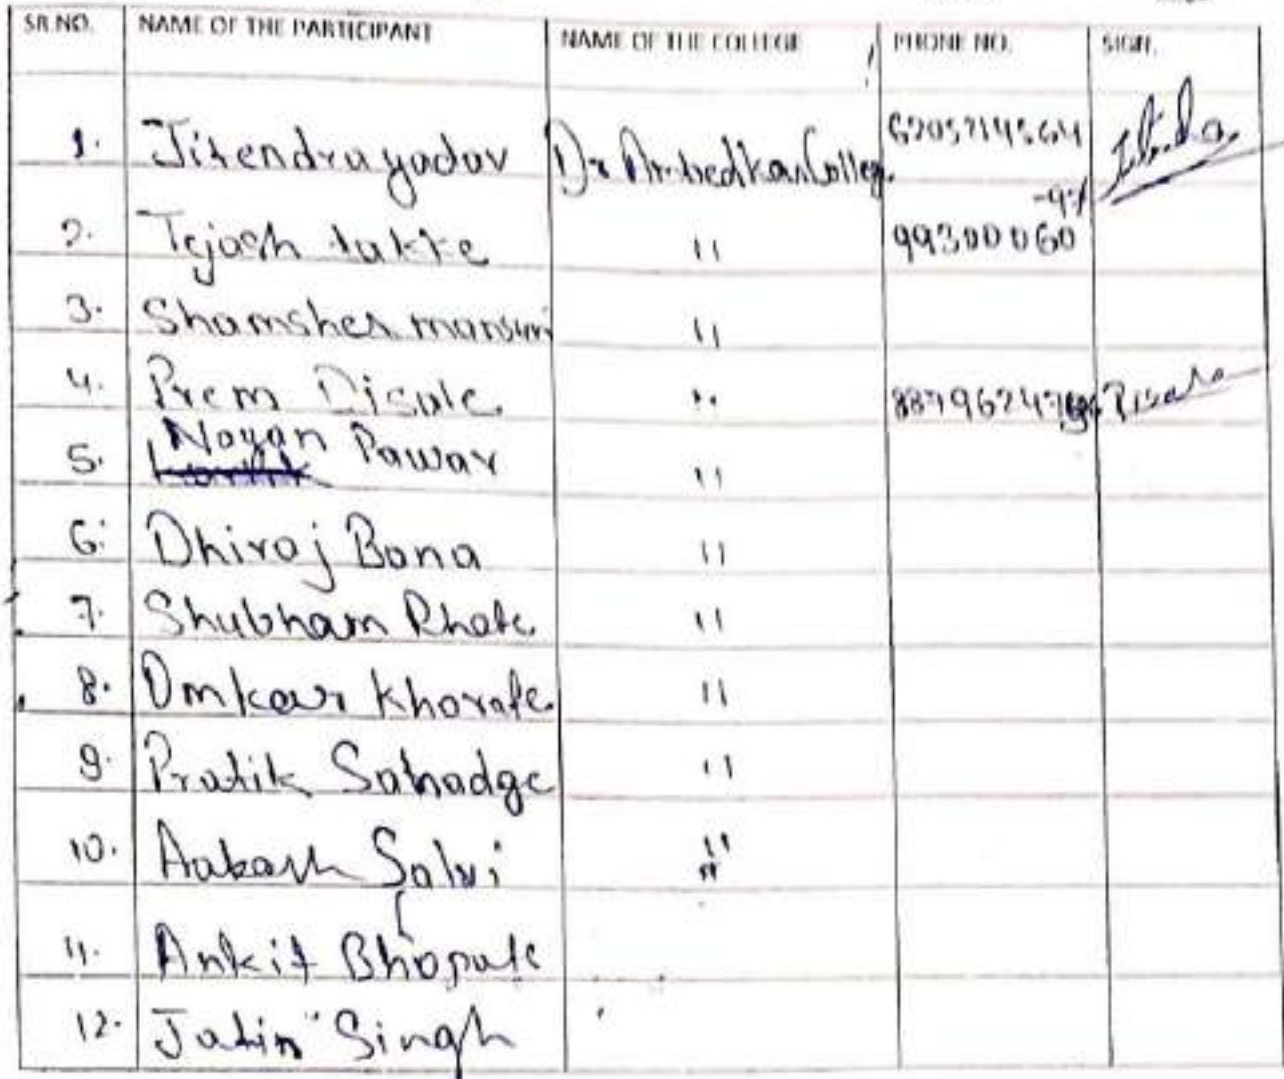 SR.NO. NAME OF THE PARTICIPANT NAME OF THE COLLEGE PHONE NO. SIGN.
1. Jitendra yadav Dr Ambedkar College. 6205214564
-97
2. Tejash tukte " 99300060
3. Shamsher mansuri "
4. Prem Disale "
5. Nayan Pawar "
6. Dhiraj Bana "
7. Shubham "
8. Omkar Khorate "
9. Pratik Sahadge "
10. Aakash Salvi "
11. Ankit
12. Jatin Singh